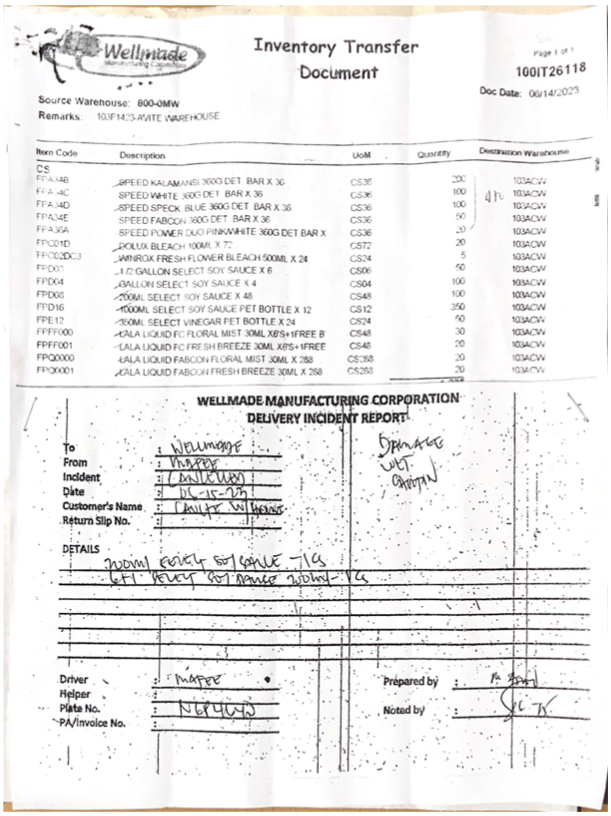 Wellmade
Manufacturing Corporation
Inventory Transfer
Document
Page 1 of 1
100IT26118
Doc Date: 06/14/2023
Source Warehouse: 800-0MW
Remarks: 103F1423-AVITE WAREHOUSE
Item Code Description UoM Quantity Destination Warehouse
CS
FPA34B SPEED KALAMANSI 360G DET BAR X 36 CS36 200 103ACW
FPA34C SPEED WHITE 360G DET BAR X 36 CS36 100 103ACW
FPA34D SPEED SPECK BLUE 360G DET BAR X 36 CS36 100 103ACW
FPA34E SPEED FABCON 360G DET BAR X 36 CS36 50 103ACW
FPA36A SPEED POWER DUO PINK/WHITE 360G DET BAR X CS36 20 103ACW
FPC01D ZOLUX BLEACH 100ML X 72 CS72 20 103ACW
FPC02DC3 WINROX FRESH FLOWER BLEACH 500ML X 24 CS24 5 103ACW
1/2 GALLON SELECT SOY SAUCE X 6 CS06 50 103ACW
FPD04 GALLON SELECT SOY SAUCE X 4 CS04 100 103ACW
FPD08 200ML SELECT SOY SAUCE X 48 CS48 100 103ACW
FPD16 1000ML SELECT SOY SAUCE PET BOTTLE X 12 CS12 350 103ACW
FPE12 350ML SELECT VINEGAR PET BOTTLE X 24 CS24 50 103ACW
FPFF000 LALA LIQUID FC FLORAL MIST 30ML X6'S+1FREE B CS48 30 103ACW
FPFF001 LALA LIQUID FC FRESH BREEZE 30ML X6'S+1FREE CS48 20 103ACW
FPQ0000 LALA LIQUID FABCON FLORAL MIST 30ML X 288 CS288 20 103ACW
FPQ0001 LALA LIQUID FABCON FRESH BREEZE 30ML X 288 CS288 20 103ACW
WELLMADE MANUFACTURING CORPORATION
DELIVERY INCIDENT REPORT
To : WELLMADE
From : MAPEE
Incident :
Date : 06-15-23
Customer's Name : CAVITE
Return Slip No. :
DAMAGE
WET
CARTON
DETAILS
200ml
200ml
Driver : MAPEE
Helper :
Plate No. :
PA/Invoice No. :
Prepared by :
Noted by :